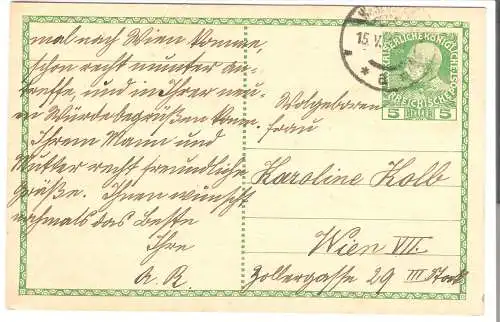 mal nach Wien komme,
schon recht munter an-
treffe, und in Ihrer neu-
en Würde begrüßen kann.
Ihrem Mann und
Mutter recht freundliche
Grüße. Ihnen wünscht
nochmals das Beste
Ihre
A. R
15.V
KAISERLICHE KÖNIGLICHE
ÖSTERREICHISCHE
5 HELLER 5
Wolgeboren
Frau
Karoline Kolb
Wien VII.
Zollergasse 29 III Stock